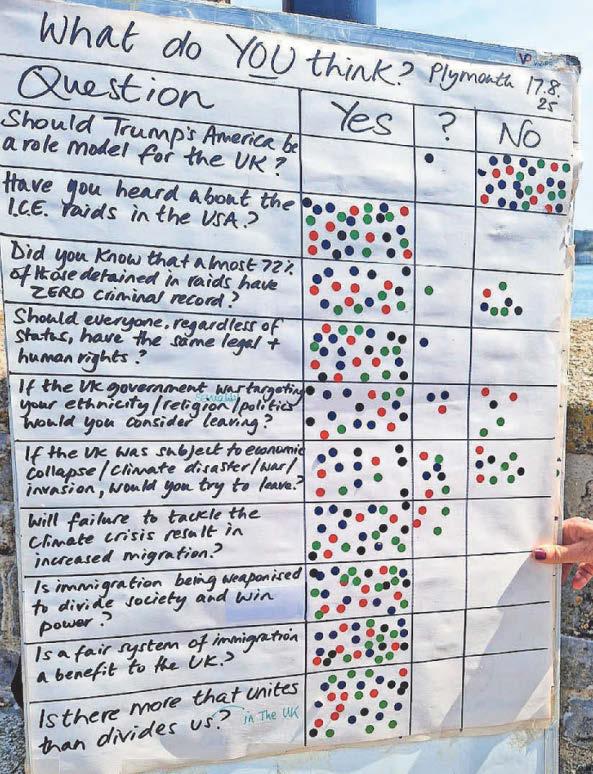 What do YOU think? Plymouth 17.8.
25
Question Yes ? No
Should Trump's America be
a role model for the UK?
Have you heard about the
I.C.E. raids in the USA?
Did you know that almost 72%
of those detained in raids have
ZERO criminal record?
Should everyone, regardless of
status, have the same legal +
human rights?
If the UK government was targeting
your ethnicity/religion/politics
would you consider leaving?
If the UK was subject to economic
collapse/climate disaster/war/
invasion, would you try to leave?
Will failure to tackle the
climate crisis result in
increased migration?
Is immigration being weaponised
to divide society and win
power?
Is a fair system of immigration
a benefit to the UK?
Is there more that unites
than divides us? in The UK